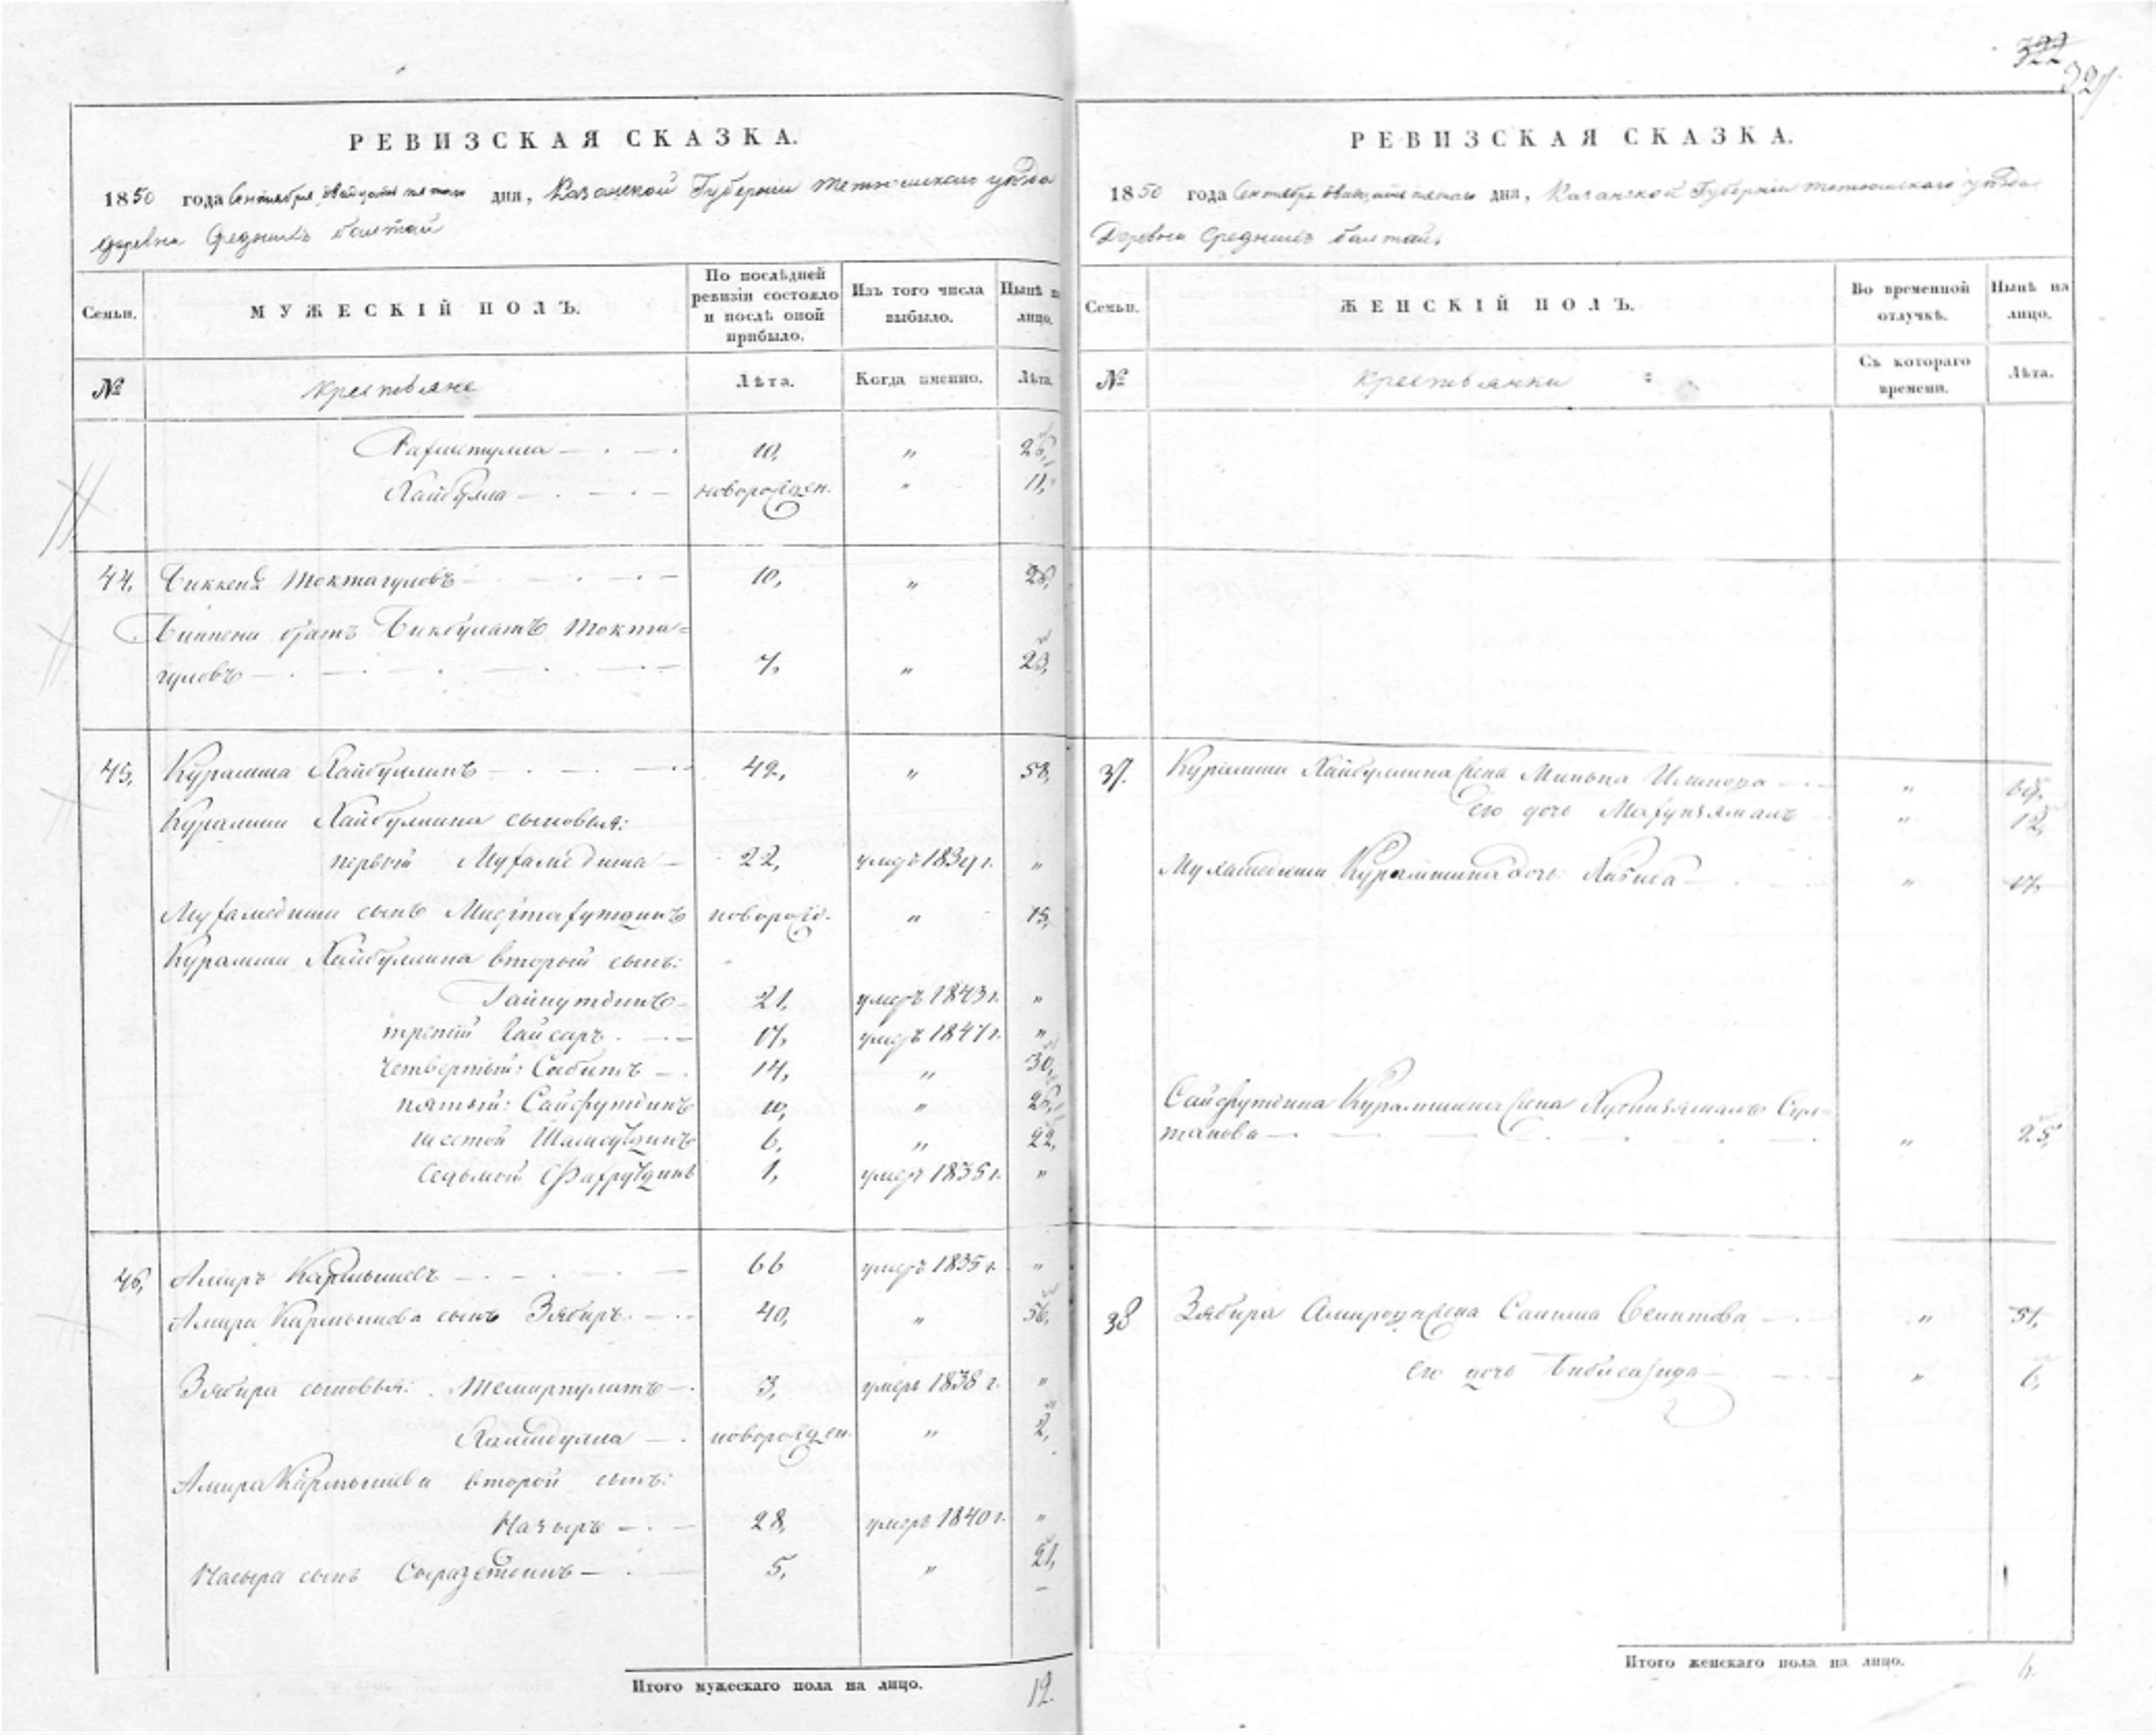 322
321
РЕВИЗСКАЯ СКАЗКА.
1850 года Сентября двадцать пятого дня, Казанской Губерніи Тетюшскаго уѣзда
Деревни Среднихъ Балтай
Семьи.
МУЖЕСКІЙ ПОЛЪ.
По послѣдней ревизіи состояло и послѣ оной прибыло.
Изъ того числа выбыло.
Нынѣ на лицо.
№
Крестьяне
Лѣта.
Когда именно.
Лѣта.
10, " 26,
Хайбулла новорожден. " 11,
44, Биккеня Токтагуловъ 10, " 26,
Биккени братъ Бикбулатъ Токта=
гуловъ 7, " 23,
45, Курамша Хайбуллинъ 42, " 58,
Курамши Хайбуллина сыновья:
первый Мухамедша 22, умеръ 1839 г. "
Мухамедши сынъ Мифтахутдинъ новорожд. " 15,
Курамши Хайбуллина второй сынъ:
Гайнутдинъ 21, умеръ 1843 г. "
третій Гайсаръ 17, умеръ 1847 г. "
четвертый: Сабитъ 14, " 30,
пятый: Сайфутдинъ 10, " 26,
шестой Шамсутдинъ 6, " 22,
седьмой Фахрутдинъ 1, умеръ 1835 г. "
46, Амиръ Кармышевъ 66 умеръ 1835 г. "
Амира Кармышева сынъ Зябиръ 40, " 56,
Зябира сыновья: Темирпулатъ 3, умеръ 1838 г. "
новорожден. " 2,
Амира Кармышева второй сынъ:
Назыръ 28, умеръ 1840 г. "
Насыра сынъ 5, " 21,
Итого мужескаго пола на лицо. 12.
РЕВИЗСКАЯ СКАЗКА.
1850 года Сентября двадцать пятаго дня, Казанской Губерніи Тетюшскаго уѣзда
Деревни Среднихъ Балтай.
Семьи.
ЖЕНСКІЙ ПОЛЪ.
Во временной отлучкѣ.
Нынѣ на лицо.
№
Крестьянки
Съ котораго времени.
Лѣта.
37. Курамши Хайбуллина жена "
его дочь " 12,
Мухамедши Курамшина дочь " 17,
Сайфутдина Курамшина жена Сул=
танова " 25,
38 Зябира Амирова жена " 51,
его дочь " 6,
Итого женскаго пола на лицо. 6.